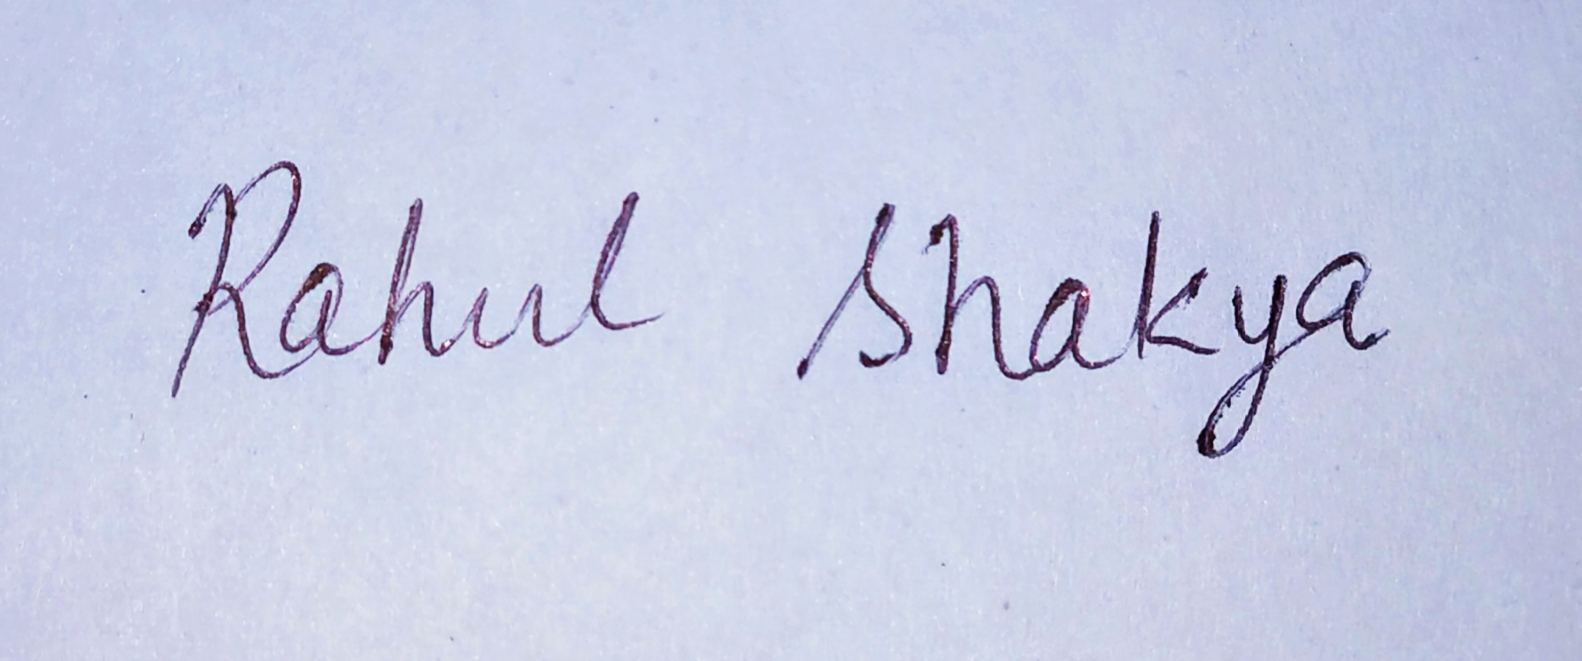 Rahul Shakya